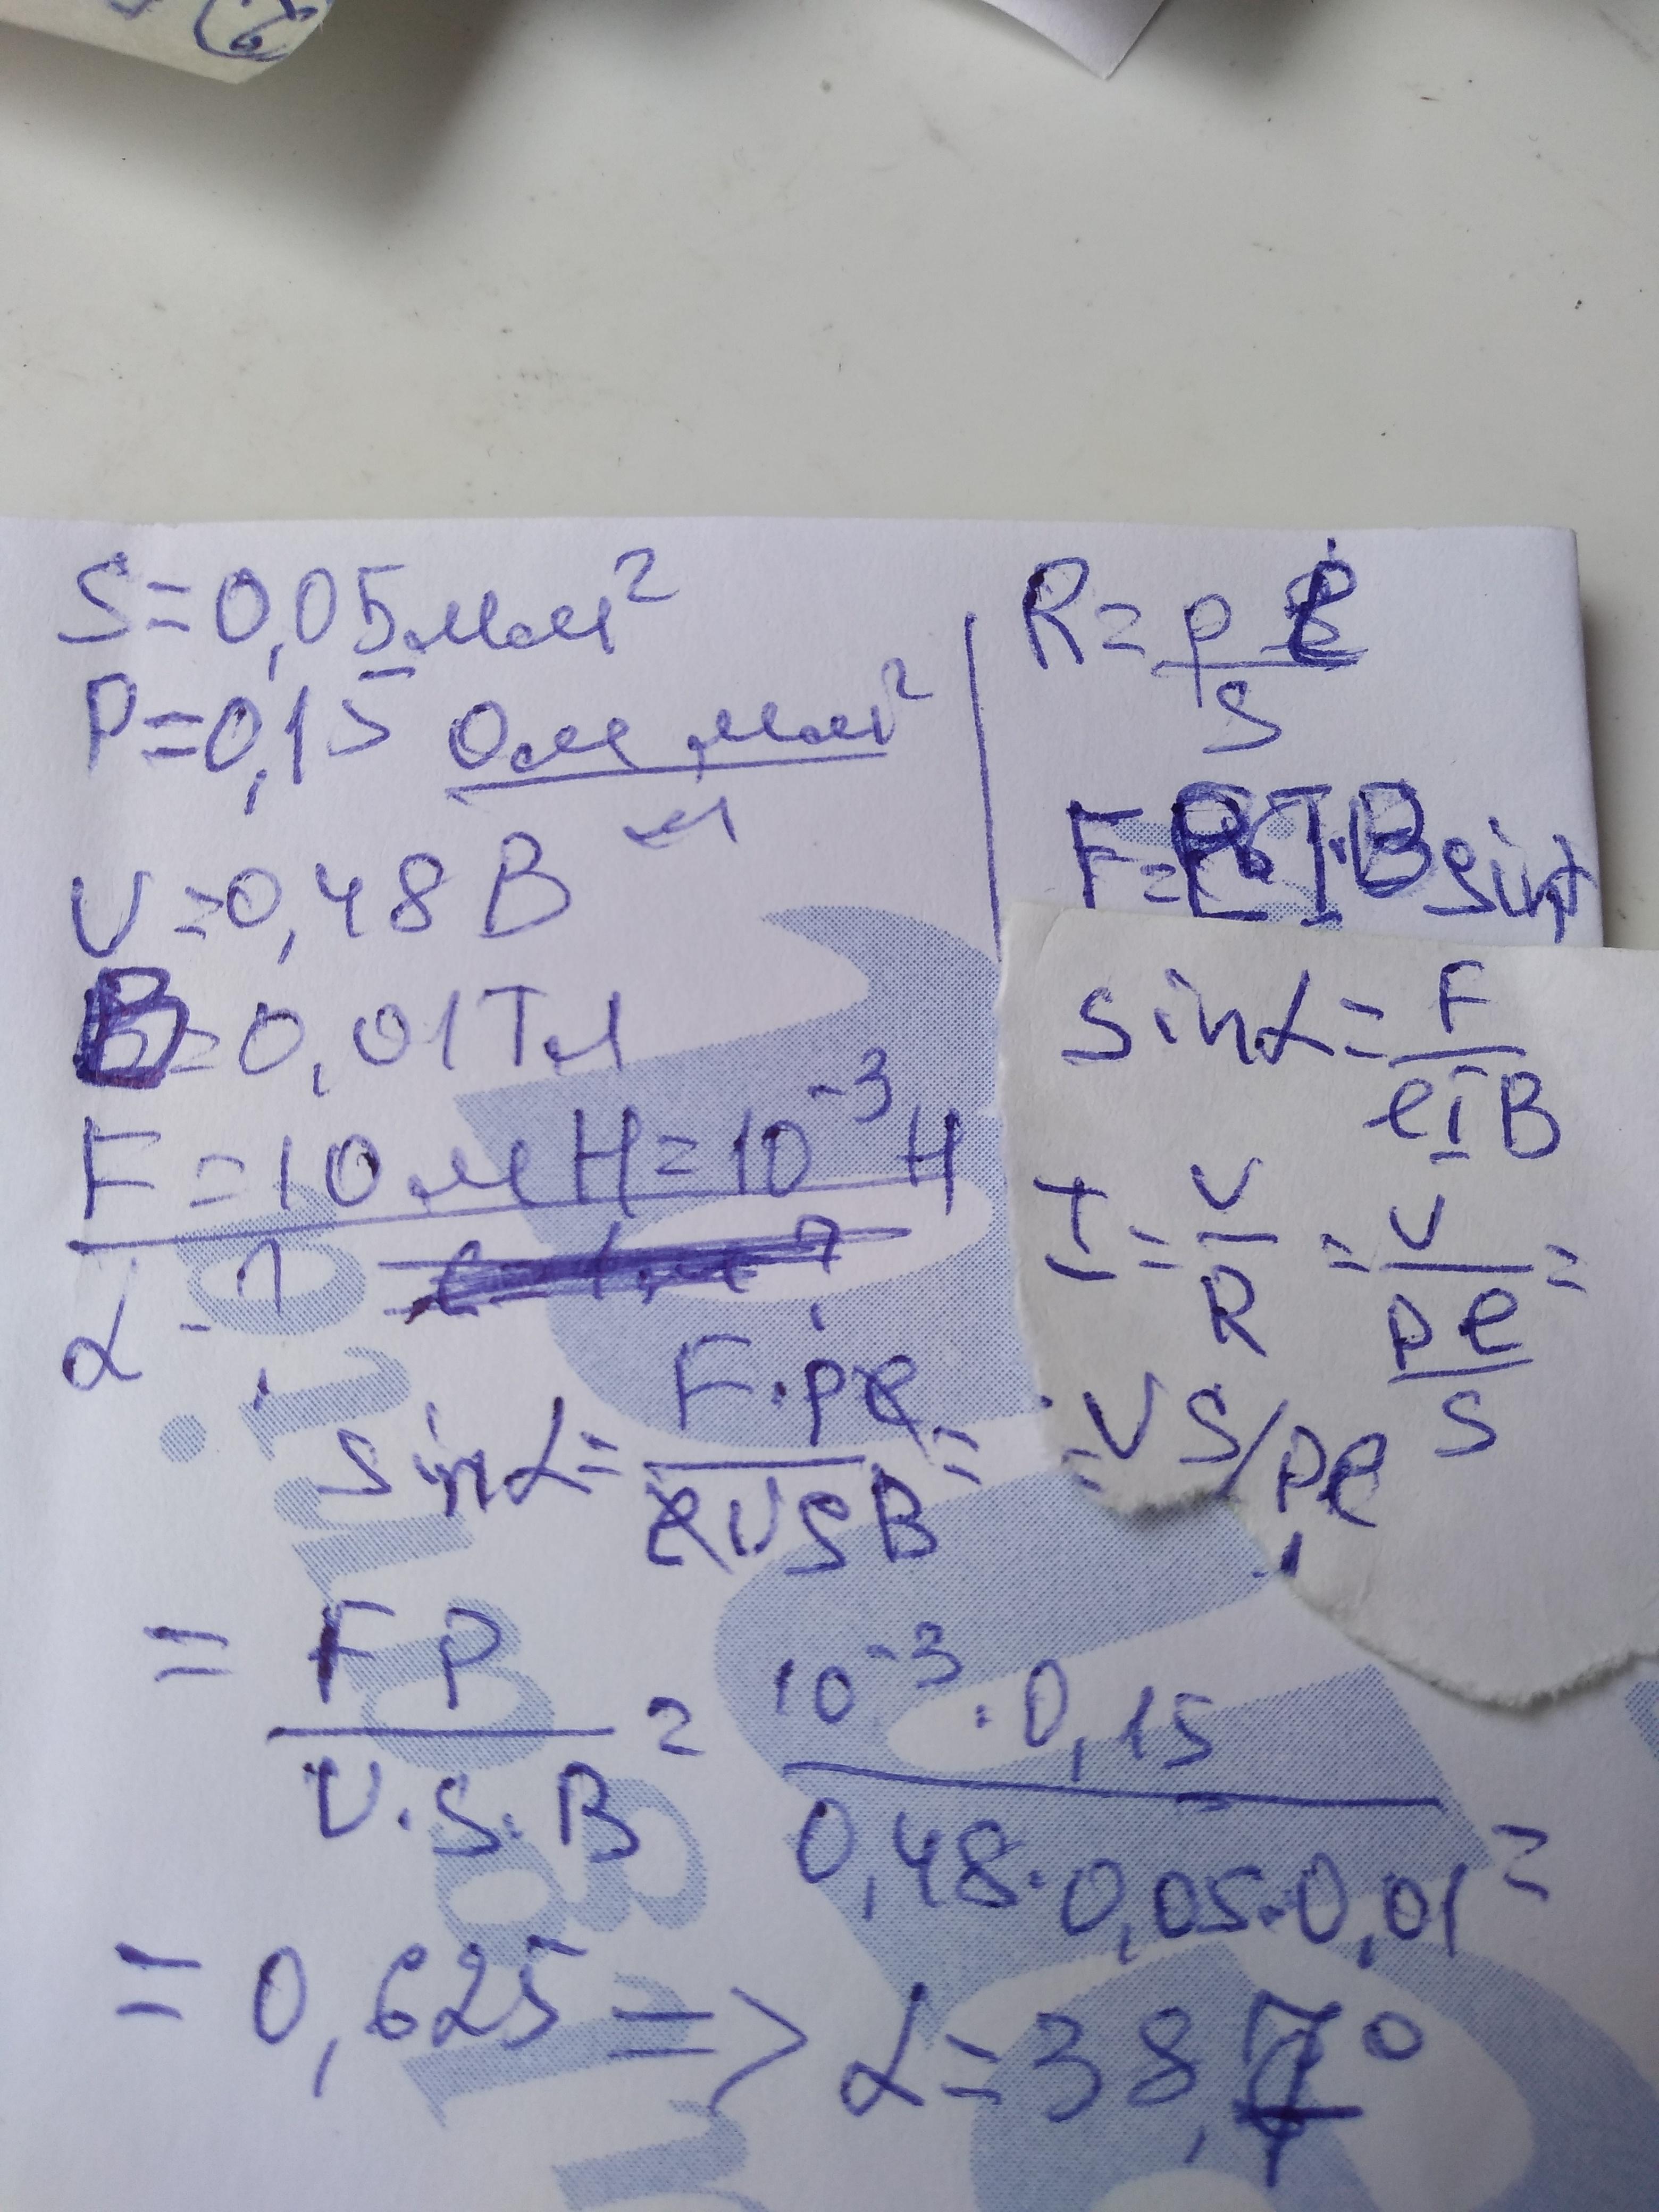 S=0,05мм²
ρ=0,15 Ом·мм²/м
U=0,48 В
B=0,01Тл
F=10мН=10⁻³Н
α - ?
R=ρℓ/S
F=ℓ·I·B sinα
sinα=F/ℓIB
I=U/R=U/ρℓ/S=
=US/ρℓ
sinα=F·ρℓ/ℓUSB=
=Fρ/U·S·B=10⁻³·0,15/0,48·0,05·0,01=
=0,625=>α=38,7°